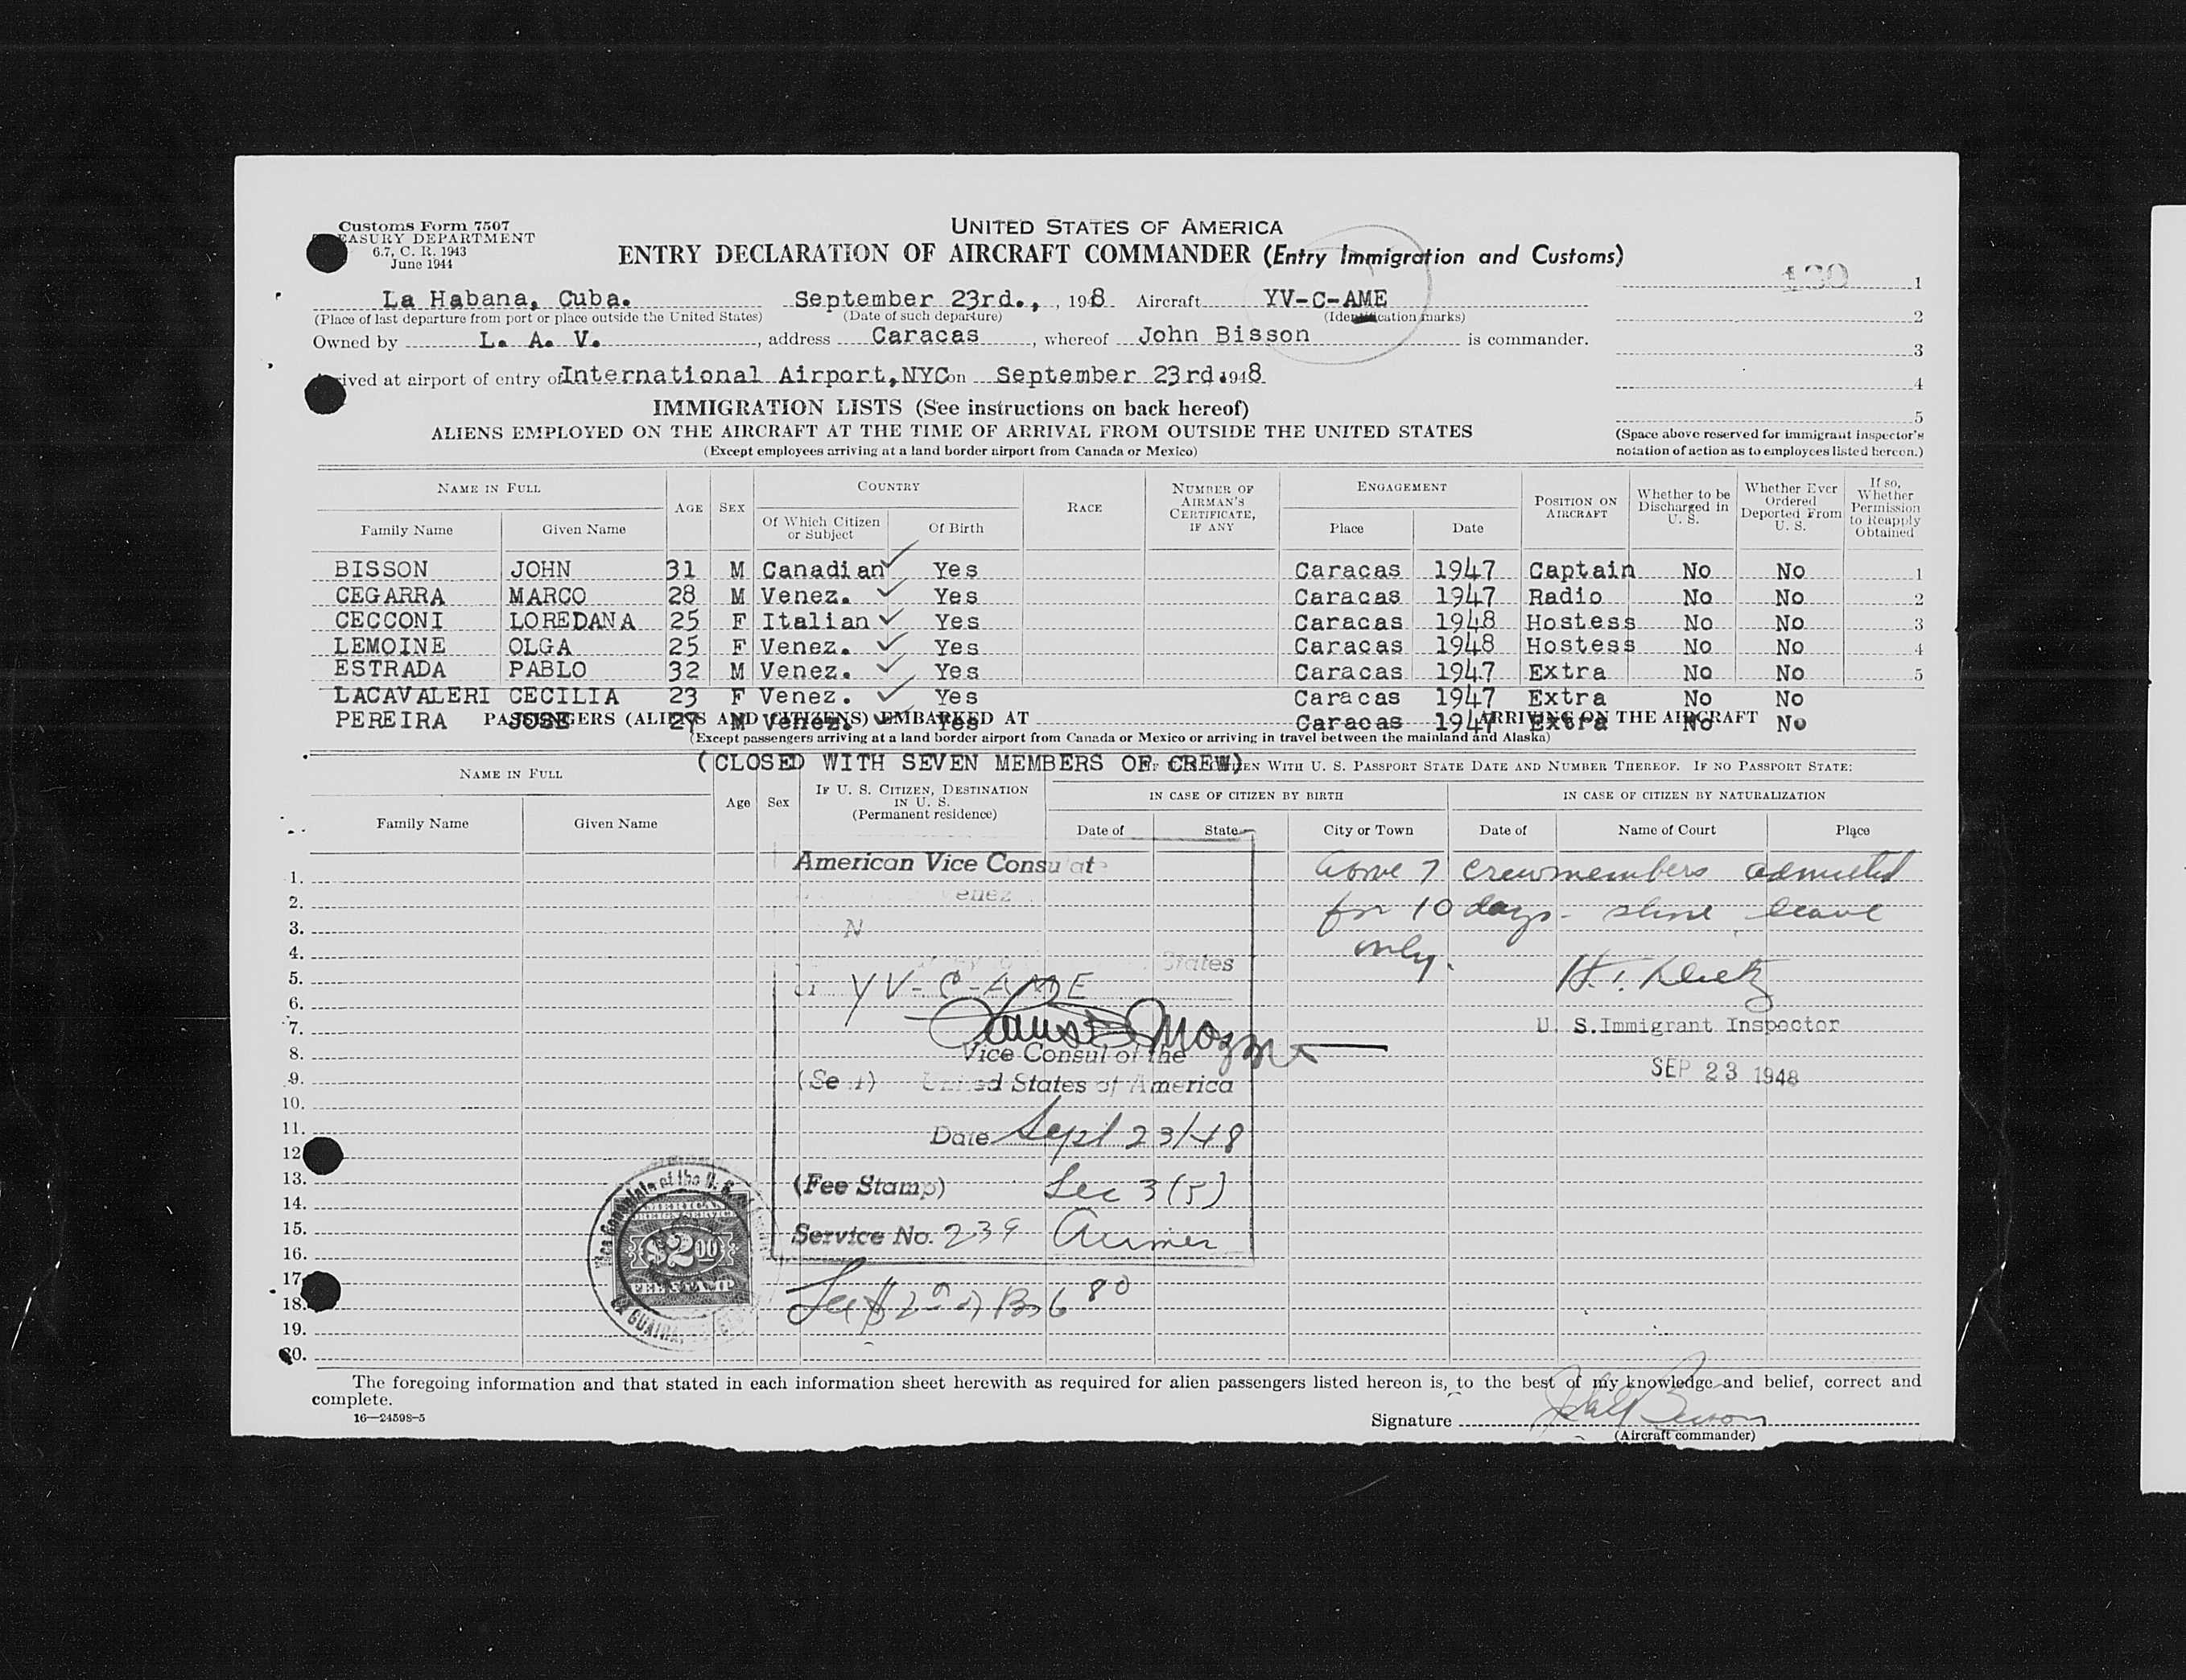 Customs Form 7507
EASURY DEPARTMENT
6.7, C. R. 1943
June 1944
UNITED STATES OF AMERICA
ENTRY DECLARATION OF AIRCRAFT COMMANDER (Entry Immigration and Customs)
La Habana, Cuba. September 23rd., , 1948 Aircraft YV-C-AME 1
(Place of last departure from port or place outside the United States) (Date of such departure) (Identification marks)
2
Owned by L. A. V. , address Caracas , whereof John Bisson is commander.
3
ived at airport of entry of International Airport, NYC on September 23rd. 1948
4
IMMIGRATION LISTS (See instructions on back hereof)
5
ALIENS EMPLOYED ON THE AIRCRAFT AT THE TIME OF ARRIVAL FROM OUTSIDE THE UNITED STATES
(Except employees arriving at a land border airport from Canada or Mexico)
(Space above reserved for immigrant inspector's
notation of action as to employees listed hereon.)
NAME IN FULL AGE SEX COUNTRY RACE NUMBER OF AIRMAN'S CERTIFICATE, IF ANY ENGAGEMENT POSITION ON AIRCRAFT Whether to be Discharged in U. S. Whether Ever Ordered Deported From U. S. If so, Whether Permission to Reapply Obtained
Family Name Given Name Of Which Citizen or Subject Of Birth Place Date
BISSON JOHN 31 M Canadian Yes Caracas 1947 Captain No No 1
CEGARRA MARCO 28 M Venez. Yes Caracas 1947 Radio No No 2
CECCONI LOREDANA 25 F Italian Yes Caracas 1948 Hostess No No 3
LEMOINE OLGA 25 F Venez. Yes Caracas 1948 Hostess No No 4
ESTRADA PABLO 32 M Venez. Yes Caracas 1947 Extra No No 5
LACAVALERI CECILIA 23 F Venez. Yes Caracas 1947 Extra No No
PEREIRA JOSE 27 M Venez. Yes Caracas 1947 Extra No No
PASSENGERS (ALIENS AND CITIZENS) EMBARKED AT ARRIVING ON THE AIRCRAFT
(Except passengers arriving at a land border airport from Canada or Mexico or arriving in travel between the mainland and Alaska)
(CLOSED WITH SEVEN MEMBERS OF CREW)
NAME IN FULL Age Sex IF U. S. CITIZEN, DESTINATION IN U. S. (Permanent residence) WITH U. S. PASSPORT STATE DATE AND NUMBER THEREOF. IF NO PASSPORT STATE:
IN CASE OF CITIZEN BY BIRTH IN CASE OF CITIZEN BY NATURALIZATION
Family Name Given Name Date of State City or Town Date of Name of Court Place
American Vice Consulate
Above 7 crewmembers admitted
1.
Venez
2.
for 10 days - shore leave
N
3.
only.
4.
States
5.
YV-C-AME
6.
U. S. Immigrant Inspector
7.
Vice Consul of the
8.
SEP 23 1948
(Seal) United States of America
9.
10.
Date Sept 23/48
11.
12
13.
(Fee Stamp) Sec 3 (5)
14.
15.
Service No. 239
16.
17.
Fee $2
18.
19.
20.
Vice Consulate of the U. S.
AMERICAN
FOREIGN SERVICE
$2.00
FEE STAMP
LA GUAIRA,
The foregoing information and that stated in each information sheet herewith as required for alien passengers listed hereon is, to the best of my knowledge and belief, correct and
complete.
16—24598-5
Signature
(Aircraft commander)